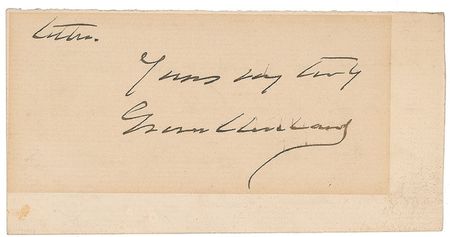 letter.
Yours very truly
Grover Cleveland